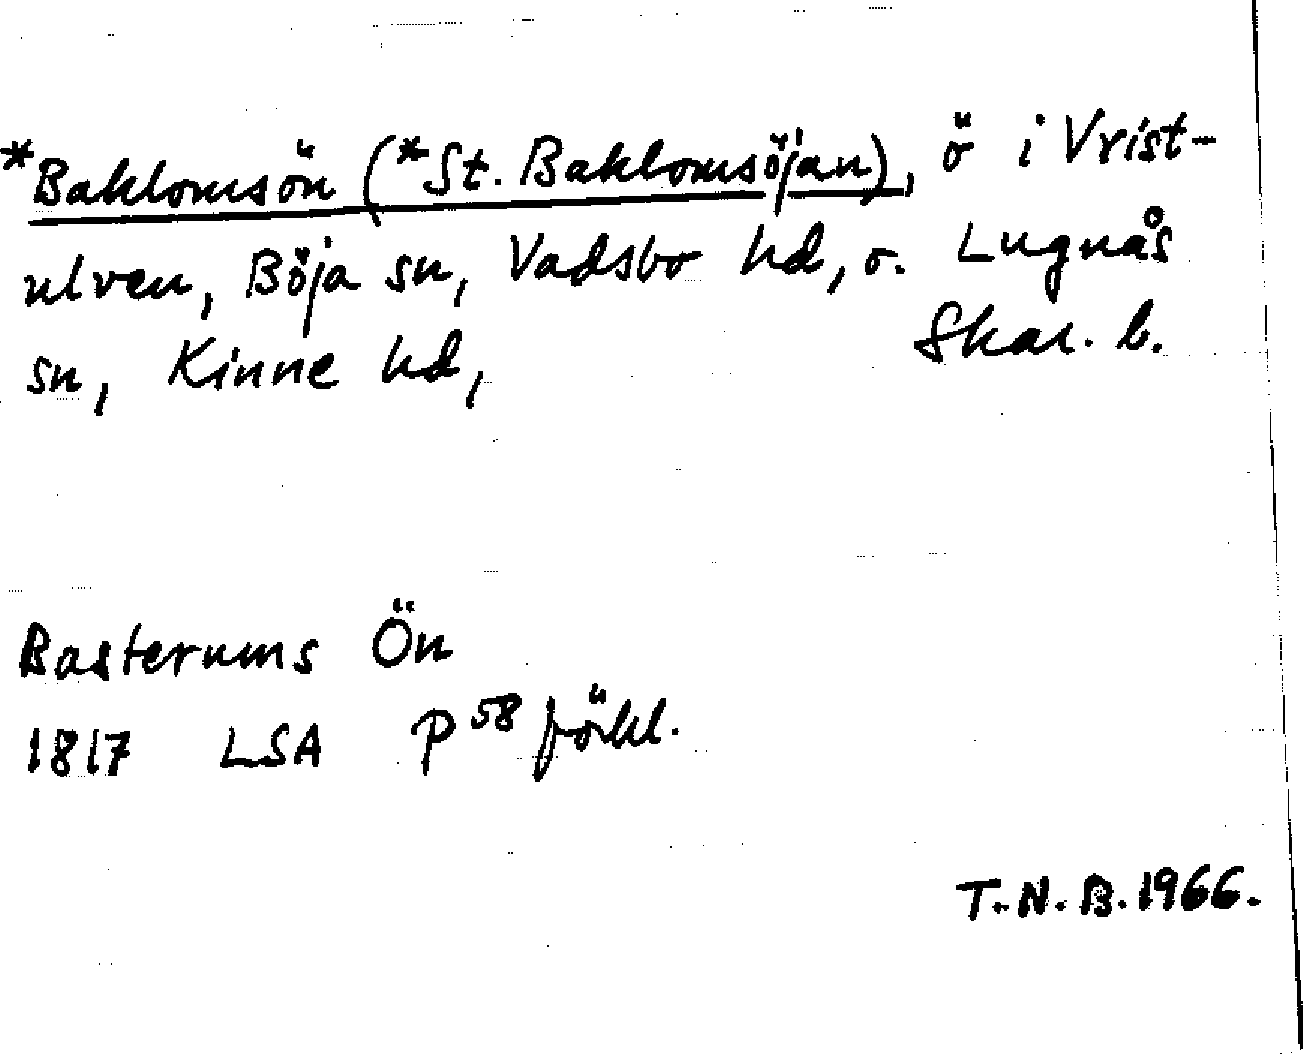 *Baklomsön (*St. Baklomsöjan), ö i Vrist-
ulven, Böja sn, Vadsbo hd, o. Lugnås
sn, Kinne hd, Skar. b.
Basterums Ön
1817 LSA P 58 förkl.
T.N.B. 1966.